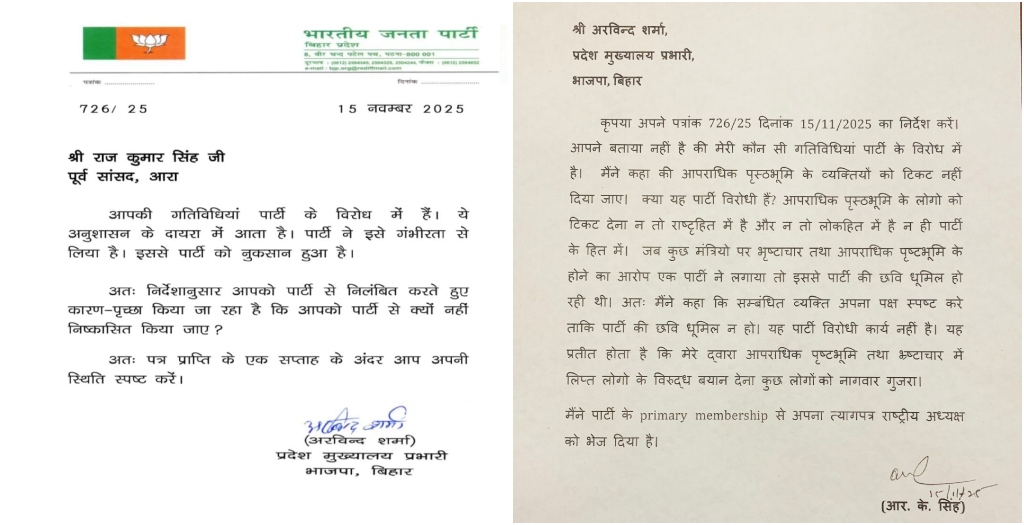 भारतीय जनता पार्टी
बिहार प्रदेश
8, वीर चन्द पटेल पथ, पटना-800 001
e-mail : bjp.org@rediffmail.com
पत्रांक ....................
दिनांक ....................
726/ 25
15 नवम्बर 2025
श्री राज कुमार सिंह जी
पूर्व सांसद, आरा
आपकी गतिविधियां पार्टी के विरोध में हैं। ये
अनुशासन के दायरा में आता है। पार्टी ने इसे गंभीरता से
लिया है। इससे पार्टी को नुकसान हुआ है।
अतः निर्देशानुसार आपको पार्टी से निलंबित करते हुए
कारण-पृच्छा किया जा रहा है कि आपको पार्टी से क्यों नहीं
निष्कासित किया जाए ?
अतः पत्र प्राप्ति के एक सप्ताह के अंदर आप अपनी
स्थिति स्पष्ट करें।
अरविन्द शर्मा
(अरविन्द शर्मा)
प्रदेश मुख्यालय प्रभारी
भाजपा, बिहार
श्री अरविन्द शर्मा,
प्रदेश मुख्यालय प्रभारी,
भाजपा, बिहार
कृपया अपने पत्रांक 726/25 दिनांक 15/11/2025 का निर्देश करें।
आपने बताया नहीं है की मेरी कौन सी गतिविधियां पार्टी के विरोध में
है। मैंने कहा की आपराधिक पृस्ठभूमि के व्यक्तियों को टिकट नहीं
दिया जाए। क्या यह पार्टी विरोधी हैं? आपराधिक पृस्ठभूमि के लोगो को
टिकट देना न तो राष्ट्रहित में है और न तो लोकहित में है न ही पार्टी
के हित में। जब कुछ मंत्रियो पर भृष्टाचार तथा आपराधिक पृष्टभूमि के
होने का आरोप एक पार्टी ने लगाया तो इससे पार्टी की छवि धूमिल हो
रही थी। अतः मैंने कहा कि सम्बंधित व्यक्ति अपना पक्ष स्पष्ट करे
ताकि पार्टी की छवि धूमिल न हो। यह पार्टी विरोधी कार्य नहीं है। यह
प्रतीत होता है कि मेरे द्वारा आपराधिक पृष्टभूमि तथा भ्रष्टाचार में
लिप्त लोगो के विरुद्ध बयान देना कुछ लोगों को नागवार गुजरा।
मैंने पार्टी के primary membership से अपना त्यागपत्र राष्ट्रीय अध्यक्ष
को भेज दिया है।
15/11/25
(आर. के. सिंह)